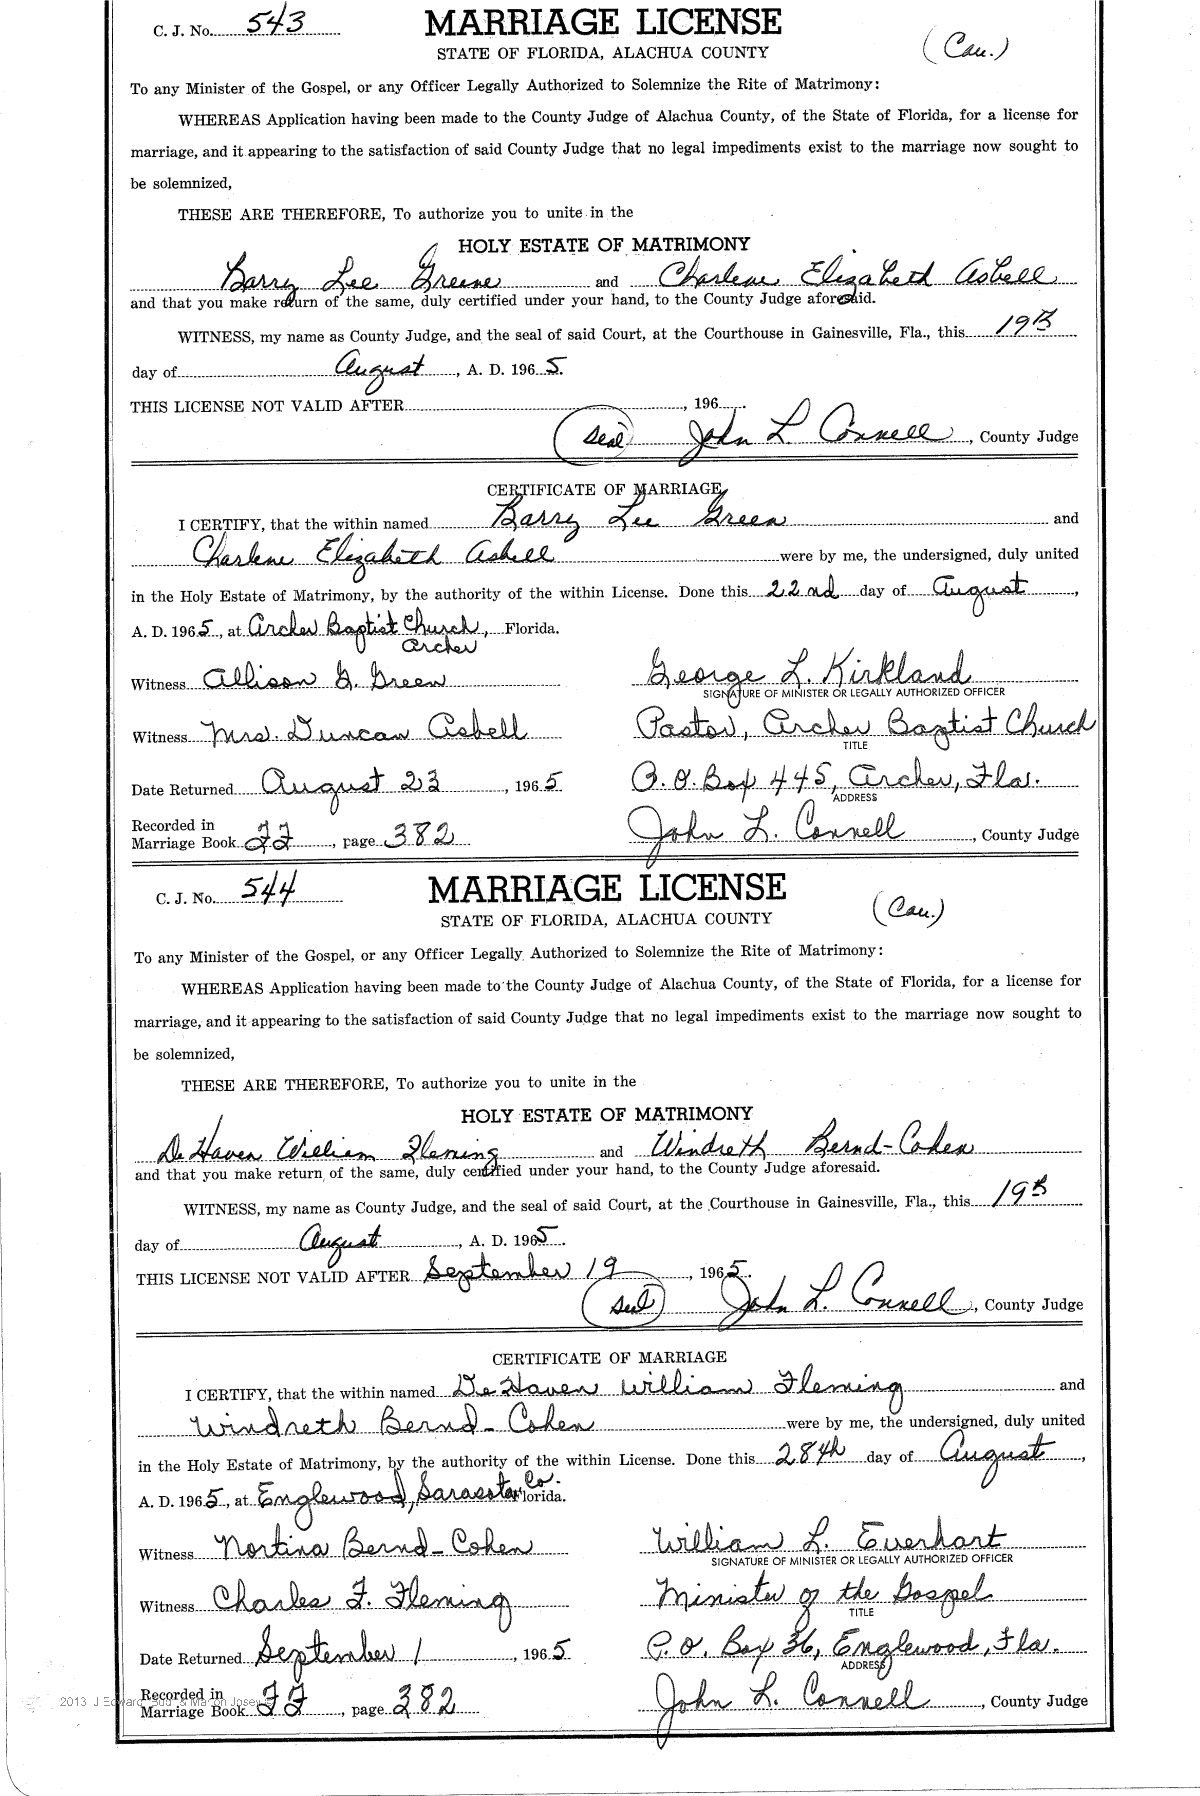 C. J. No. 543
MARRIAGE LICENSE
STATE OF FLORIDA, ALACHUA COUNTY
(Cau.)
To any Minister of the Gospel, or any Officer Legally Authorized to Solemnize the Rite of Matrimony:
WHEREAS Application having been made to the County Judge of Alachua County, of the State of Florida, for a license for
marriage, and it appearing to the satisfaction of said County Judge that no legal impediments exist to the marriage now sought to
be solemnized,
THESE ARE THEREFORE, To authorize you to unite in the
HOLY ESTATE OF MATRIMONY
Barry Lee Greene and Charlene Elizabeth Asbell
and that you make return of the same, duly certified under your hand, to the County Judge aforesaid.
WITNESS, my name as County Judge, and the seal of said Court, at the Courthouse in Gainesville, Fla., this 19th
day of August, A. D. 1965.
THIS LICENSE NOT VALID AFTER , 196 .
(Seal) John L. Connell, County Judge
CERTIFICATE OF MARRIAGE
I CERTIFY, that the within named Barry Lee Green and
Charlene Elizabeth Asbell were by me, the undersigned, duly united
in the Holy Estate of Matrimony, by the authority of the within License. Done this 22nd day of August,
A. D. 1965, at Archer Baptist Church, Florida.
Archer
Witness Allison G. Green George L. Kirkland
SIGNATURE OF MINISTER OR LEGALLY AUTHORIZED OFFICER
Witness Mrs. Duncan Asbell Pastor, Archer Baptist Church
TITLE
Date Returned August 23, 1965 P. O. Box 445, Archer, Fla.
ADDRESS
Recorded in
Marriage Book JJ, page 382 John L. Connell, County Judge
C. J. No. 544
MARRIAGE LICENSE
STATE OF FLORIDA, ALACHUA COUNTY
(Cau.)
To any Minister of the Gospel, or any Officer Legally Authorized to Solemnize the Rite of Matrimony:
WHEREAS Application having been made to the County Judge of Alachua County, of the State of Florida, for a license for
marriage, and it appearing to the satisfaction of said County Judge that no legal impediments exist to the marriage now sought to
be solemnized,
THESE ARE THEREFORE, To authorize you to unite in the
HOLY ESTATE OF MATRIMONY
De Haven William Fleming and Windreth Bernd-Cohen
and that you make return of the same, duly certified under your hand, to the County Judge aforesaid.
WITNESS, my name as County Judge, and the seal of said Court, at the Courthouse in Gainesville, Fla., this 19th
day of August, A. D. 1965.
THIS LICENSE NOT VALID AFTER September 19, 1965.
(Seal) John L. Connell, County Judge
CERTIFICATE OF MARRIAGE
I CERTIFY, that the within named De Haven William Fleming and
Windreth Bernd-Cohen were by me, the undersigned, duly united
in the Holy Estate of Matrimony, by the authority of the within License. Done this 28th day of August,
A. D. 1965, at Englewood, Sarasota Co. Florida.
Witness Nortina Bernd-Cohen William L. Everhart
SIGNATURE OF MINISTER OR LEGALLY AUTHORIZED OFFICER
Witness Charles F. Fleming Minister of the Gospel
TITLE
Date Returned September 1, 1965 P. O. Box 36, Englewood, Fla.
ADDRESS
Recorded in
Marriage Book JJ, page 382 John L. Connell, County Judge
2013 J Edward